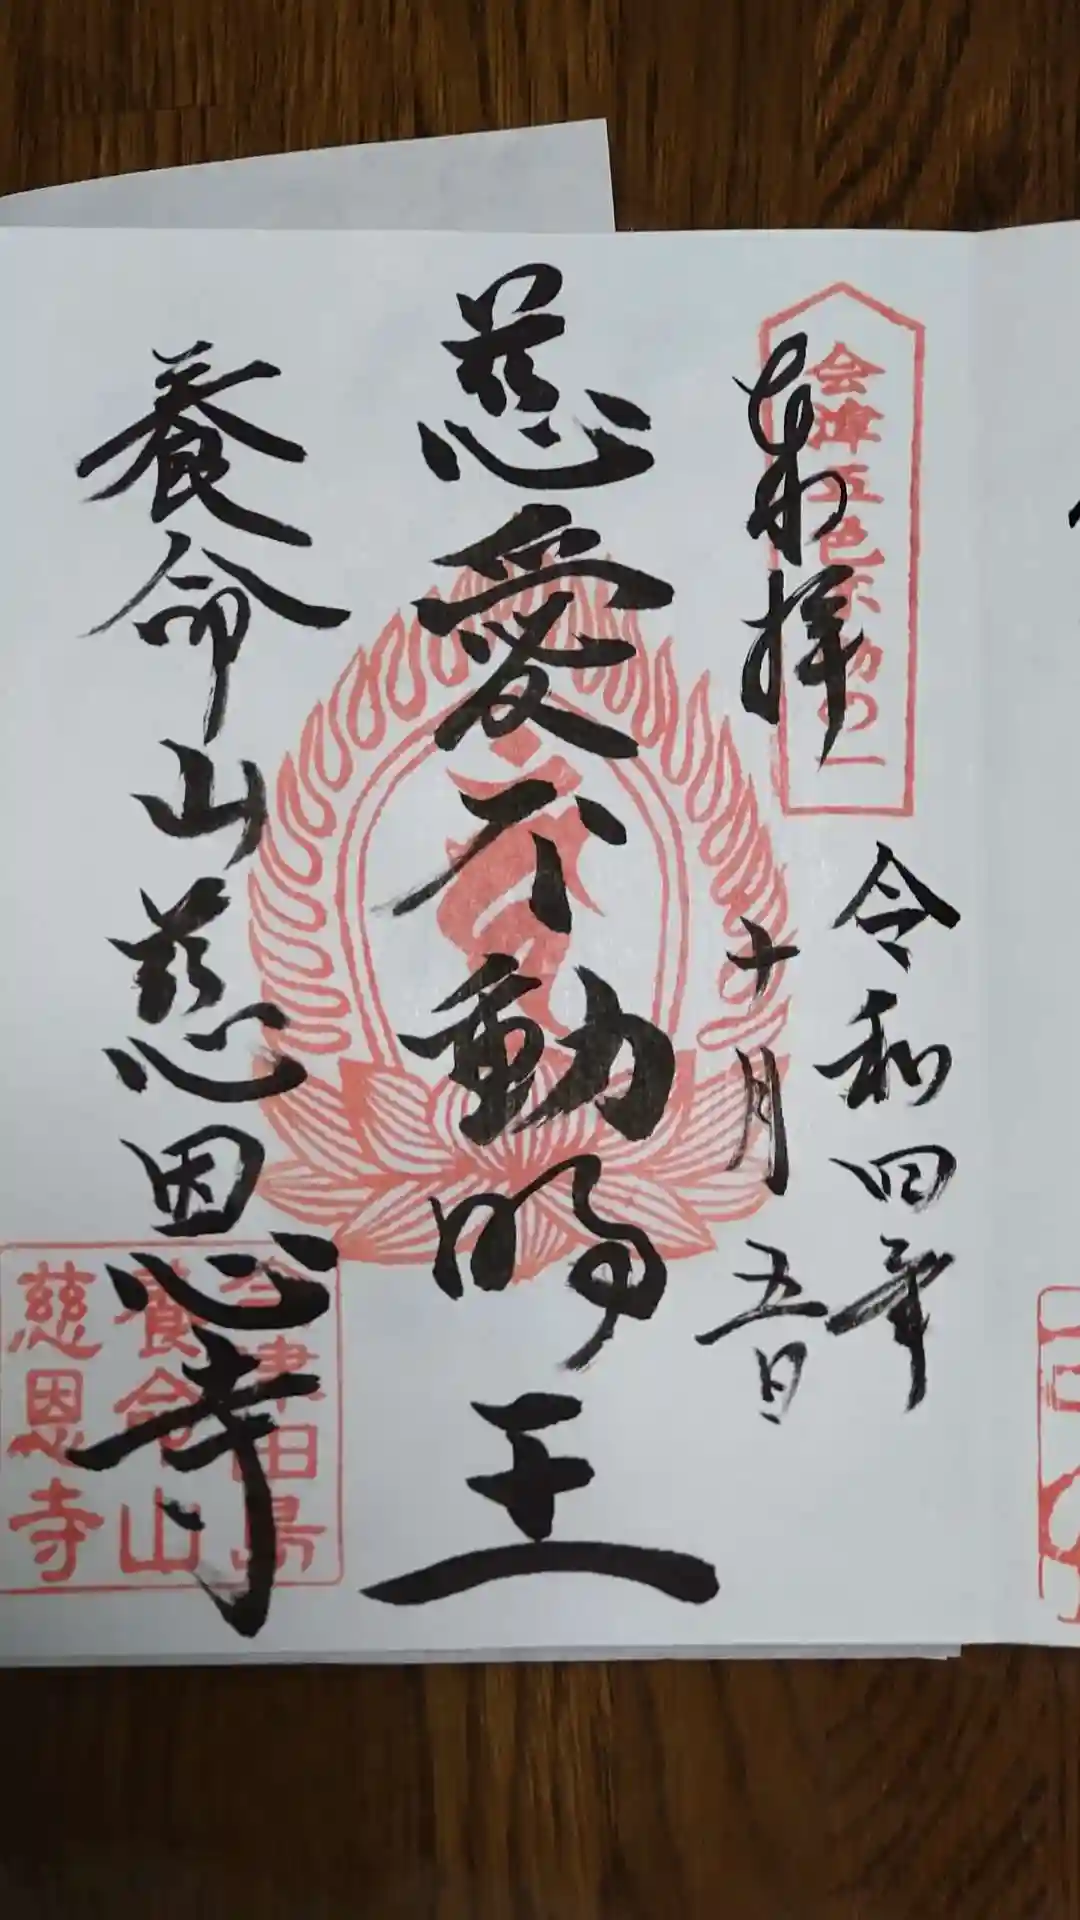 会津五色不動の一
奉拝
令和四年
十月五日
慈愛不動明王
養命山慈恩寺
会津田島
養命山
慈恩寺